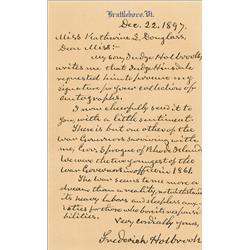 Brattleboro, Vt.
Dec. 22. 1897.
Miss Katherine L. Douglass,
Dear Miss:-
My son, Judge Holbrook,
writes me that Judge Hinsdale
requested him to procure my
signature for your collection of
autographs.
I now cheerfully send it to
you, with a little sentiment.
There is but one other of the
war Governors surviving with
me, Gov. Sprague of Rhode Island.
We were the two youngest of the
war Governors in office in 1861.
The war seems to me more a
dream than a reality, notwithstanding
its heavy labors and sleepless anx-
ieties for those who bore its responsi-
bilities.
Very cordially yours,
Frederick Holbrook